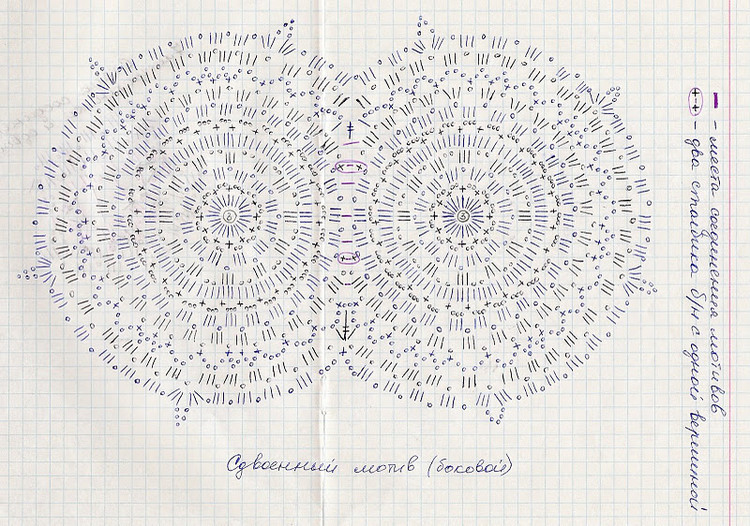 – места соединения мотивов
– два столбика б/н с одной вершиной
Сдвоенный мотив (боковой)